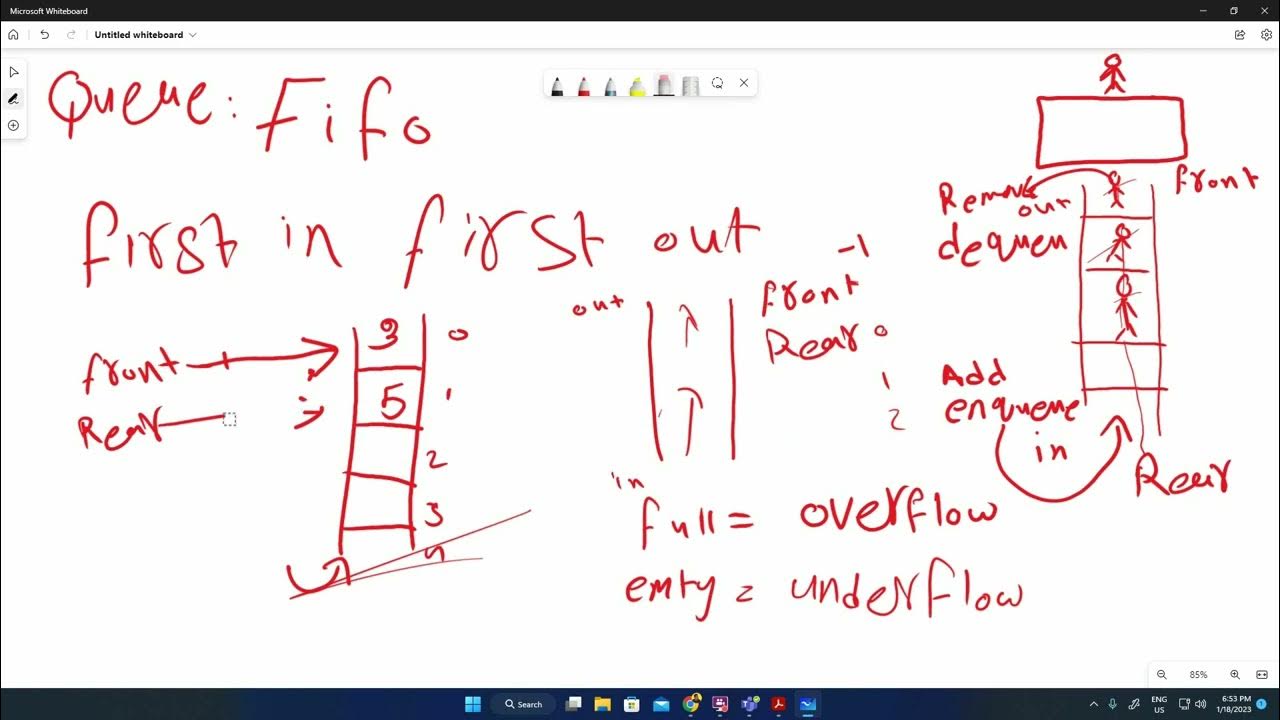 Microsoft Whiteboard
Untitled whiteboard
Queue: Fifo
first in first out
front
Rear
3
0
5
1
2
3
4
out
in
-1
front
Rear 0
1
2
full = overflow
emty = underflow
front
Remove
out
dequeu
Add
enqueue
in
Rear
85%
Search
ENG
US
6:53 PM
1/18/2023